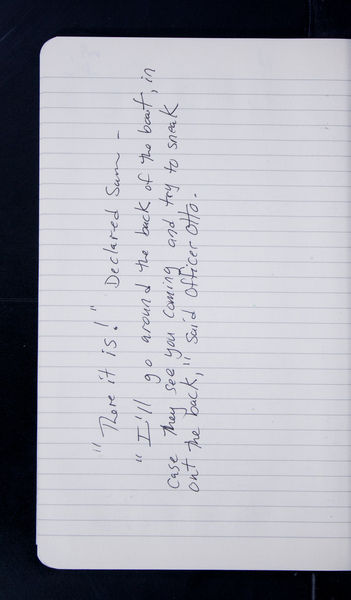 "There it is!" Declared Sam -
"I'll go around the back of the boat, in
case they see you coming and try to sneak
out the back," said Officer Otto.